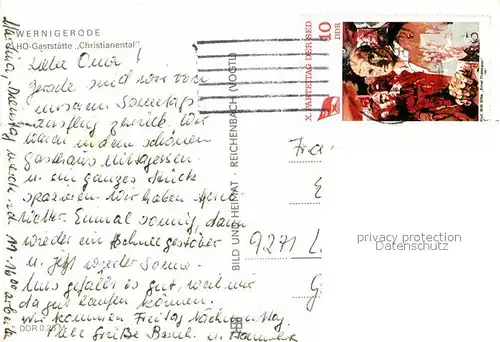 WERNIGERODE
HO-Gaststätte „Christianental"
Liebe Oma!
Gerade sind wir von
unserem Sonntags-
ausflug zurück. Wir
waren in dem schönen
Gasthaus Mittagessen
u. ein ganzes Stück
spazieren. Wir haben
Einmal sonnig, dann
wieder ein Schneegestöber
u. jetzt wieder Sonne.
Uns gefällt es gut, weil wir
da gut laufen können.
Wir kommen Freitag Nachmittag.
Viele Grüße
u.
Martina, Dienstag werde
arbeite
DDR 0,25 M
BILD UND HEIMAT · REICHENBACH (VOGTL)
X. PARTEITAG DER SED
10
DDR
Fra
9271 L
G
privacy protection
Datenschutz